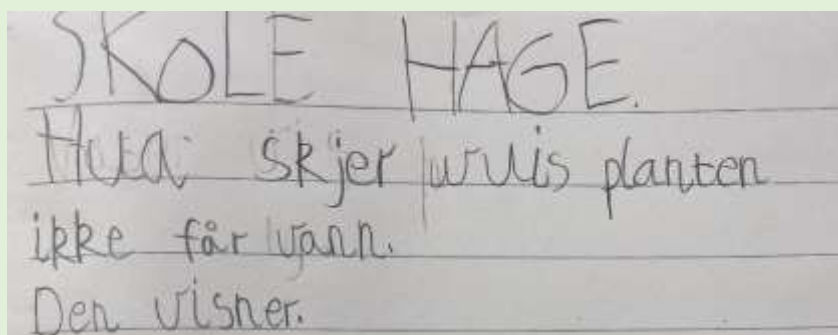 SKOLE HAGE.
Hva skjer wuis planten
ikke får vann.
Den visner.